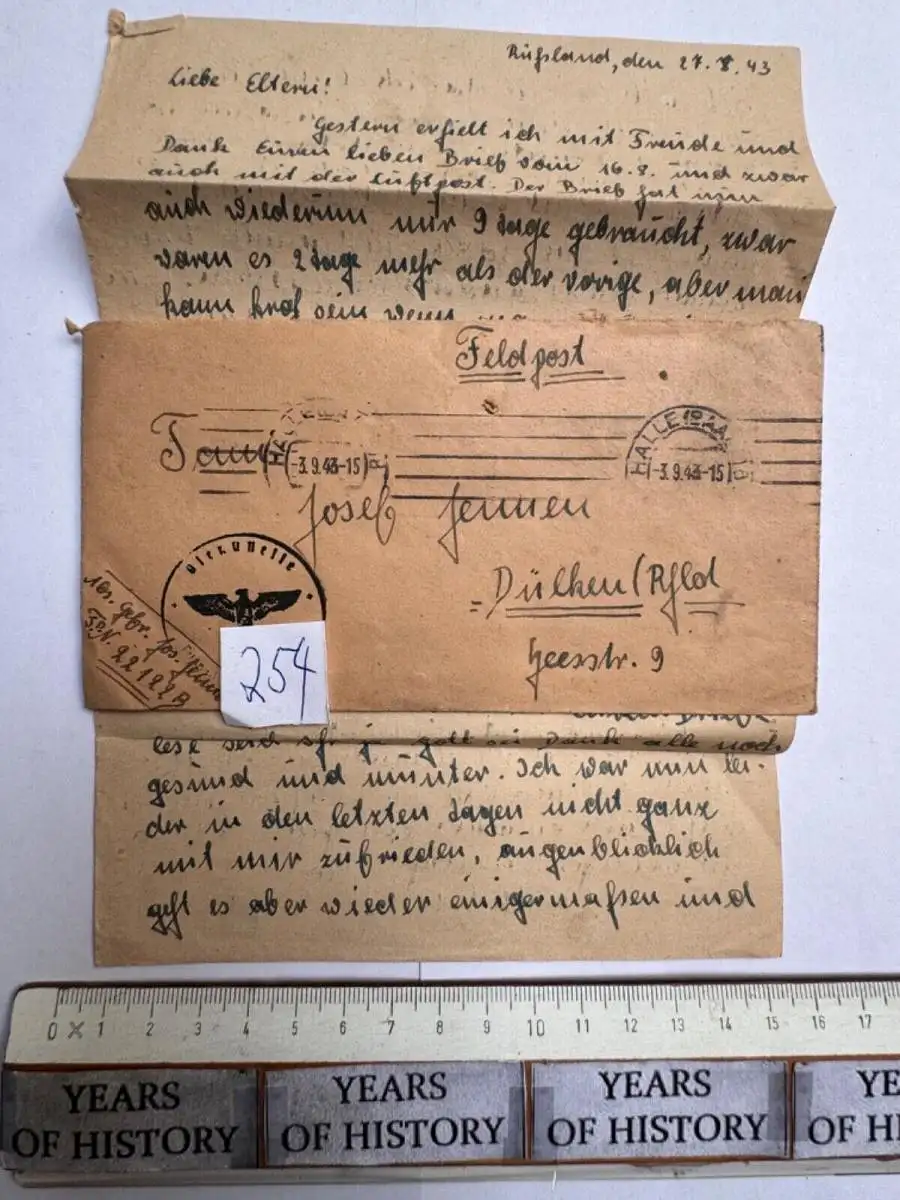 Rußland, den 27.8.43
Liebe Eltern!
Gestern erhielt ich mit Freude und
Dank Euren lieben Brief vom 16.8. und zwar
auch mit der Luftpost. Der Brief hat nun
auch wiederum nur 9 Tage gebraucht, zwar
waren es 2 Tage mehr als der vorige, aber man
kann froh sein wenn
Feldpost
HALLE (SAA
-3.9.43-15
-3.9.43-15
Josef Jennen
Dülken/Rhld
Heesstr. 9
Abs. Gefr. Jos. Jennen
F.P.N. 22122B
254
lese seid ihr ja Gott sei Dank alle noch
gesund und munter. Ich war nun lei-
der in den letzten Tagen nicht ganz
mit mir zufrieden, augenblicklich
geht es aber wieder einigermaßen und
0 1 2 3 4 5 6 7 8 9 10 11 12 13 14 15 16 17
YEARS YEARS YEARS YE
OF HISTORY OF HISTORY OF HISTORY OF HI